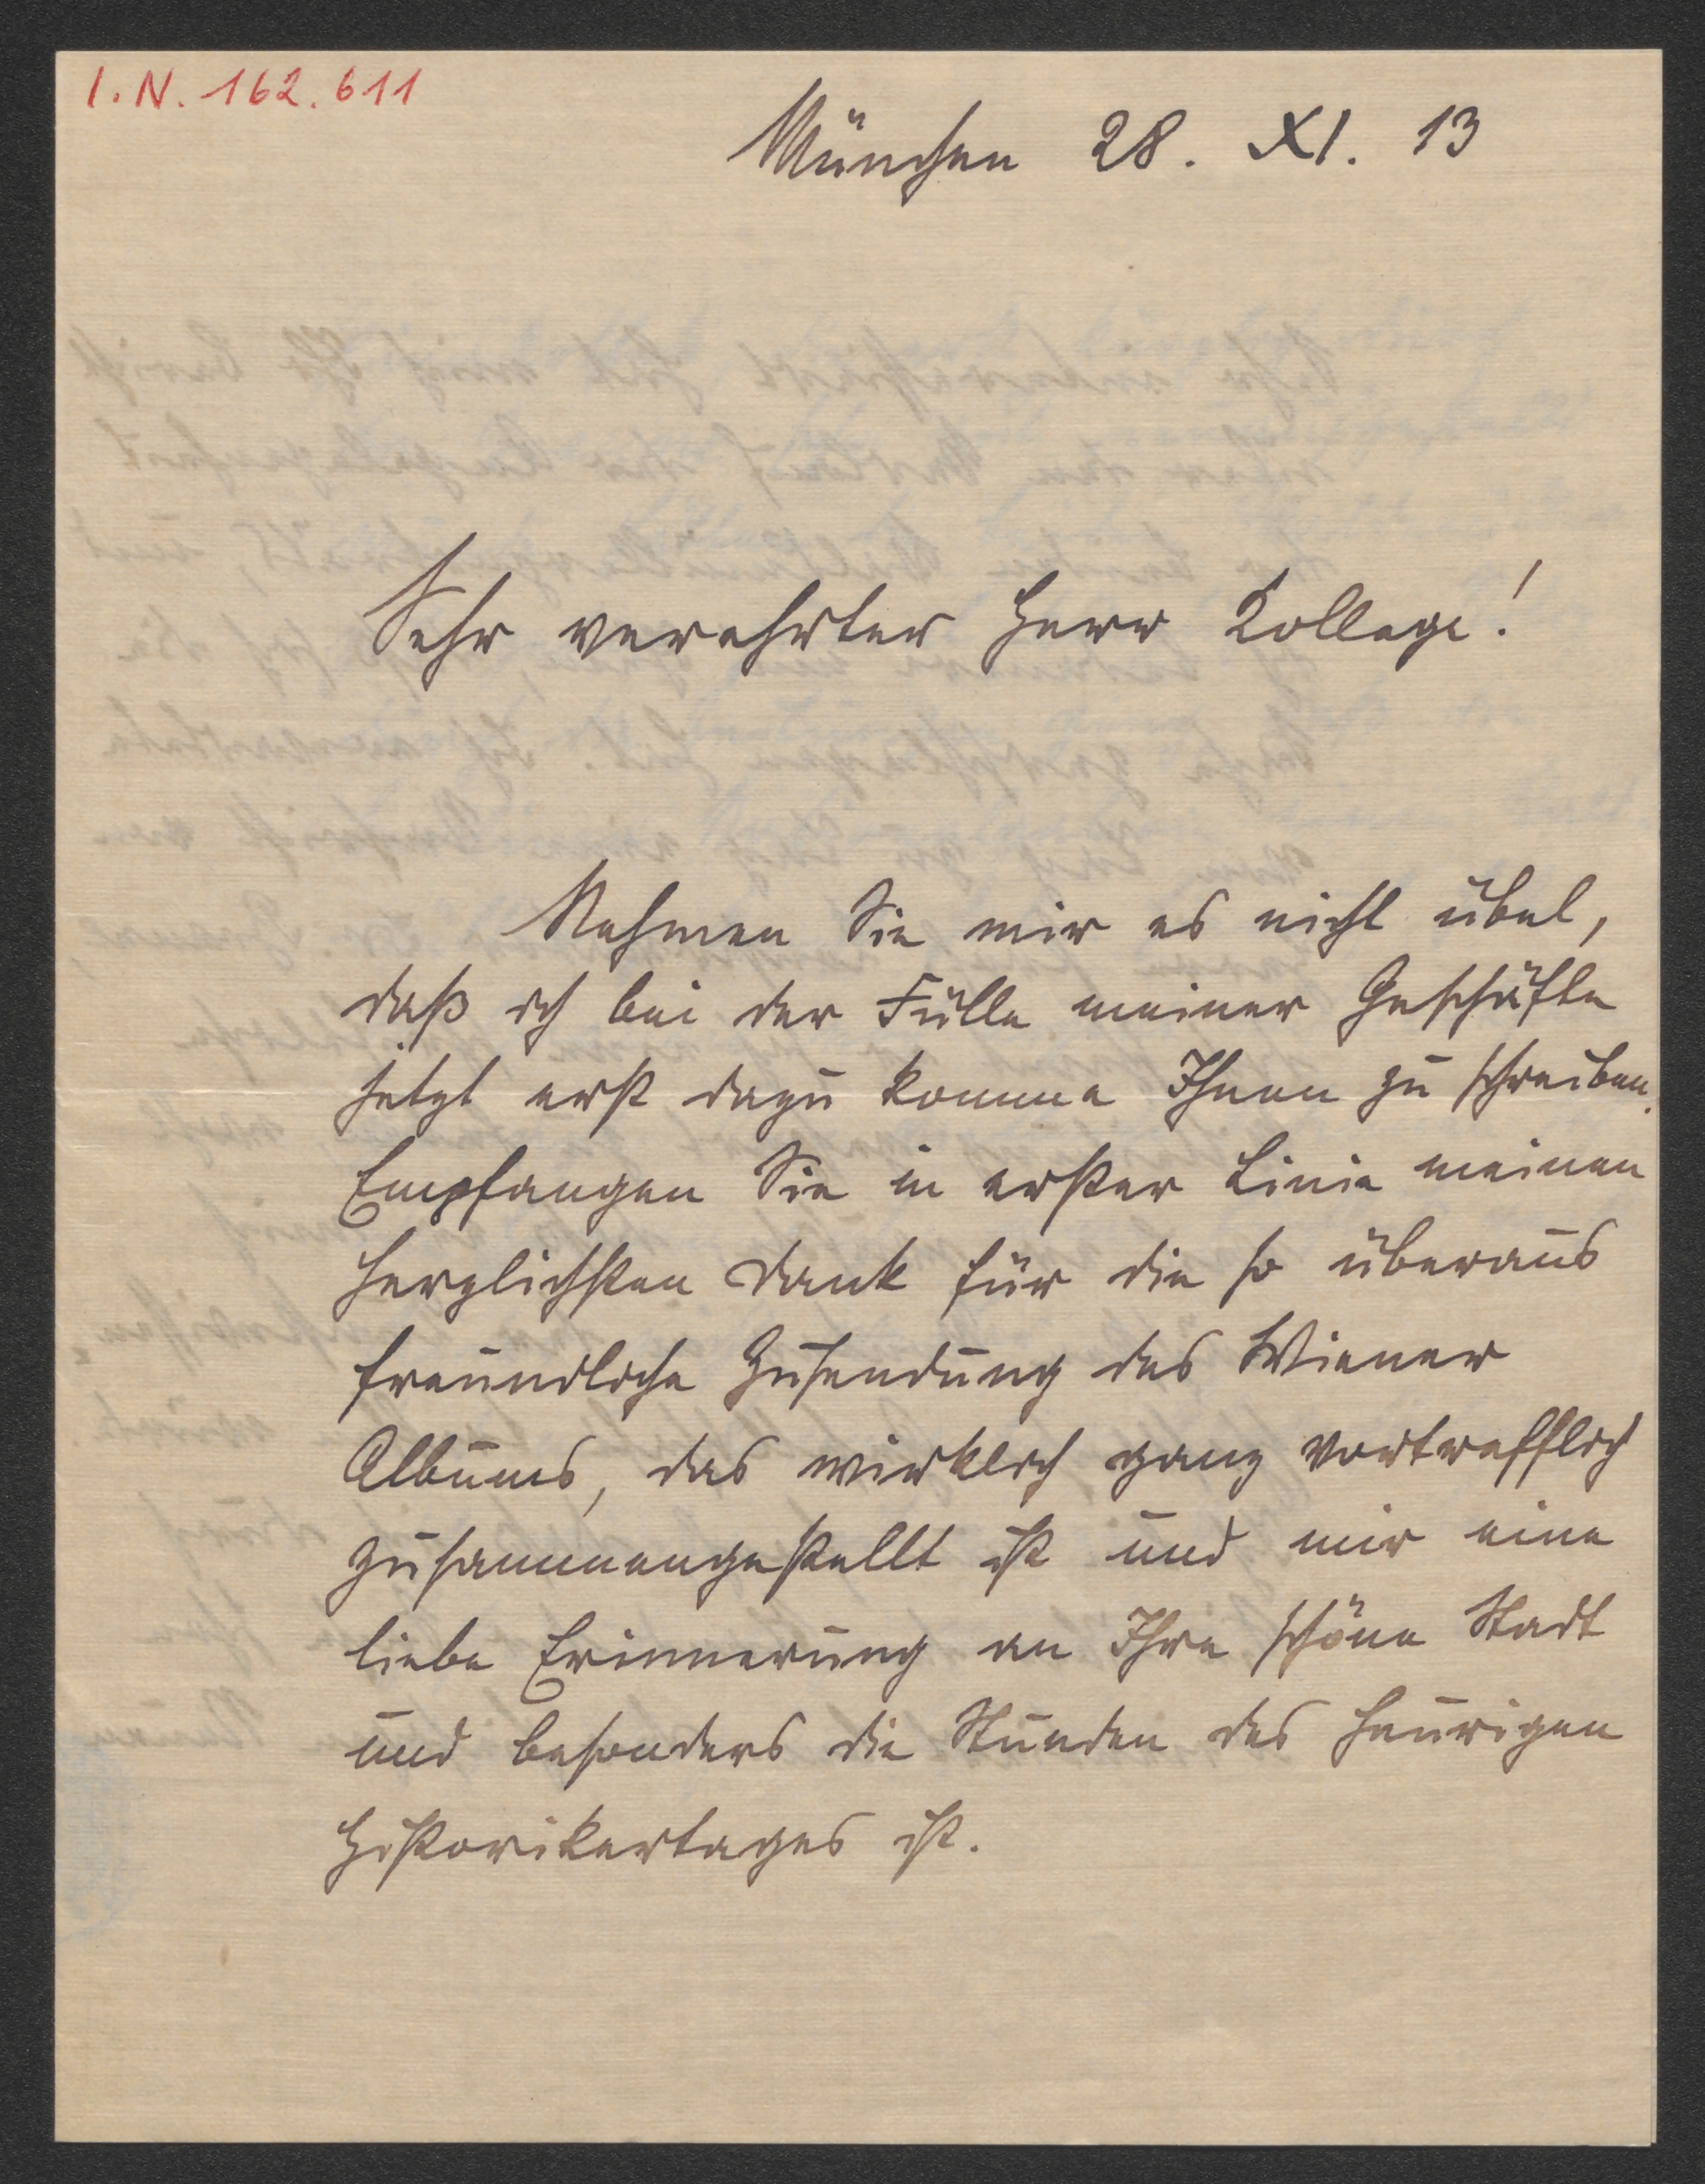 I.N. 162.611
München 28. XI. 13
Sehr verehrter Herr Kollege!
Nehmen Sie mir es nicht übel,
daß ich bei der Fülle meiner Geschäfte
jetzt erst dazu komme Ihnen zu schreiben.
Empfangen Sie in erster Linie meinen
herzlichsten Dank für die so überaus
freundliche Zusendung des Wiener
Albums, das wirklich ganz vortrefflich
zusammengestellt ist und mir eine
liebe Erinnerung an Ihre schöne Stadt
und besonders die Stunden des heurigen
Historikertages ist.